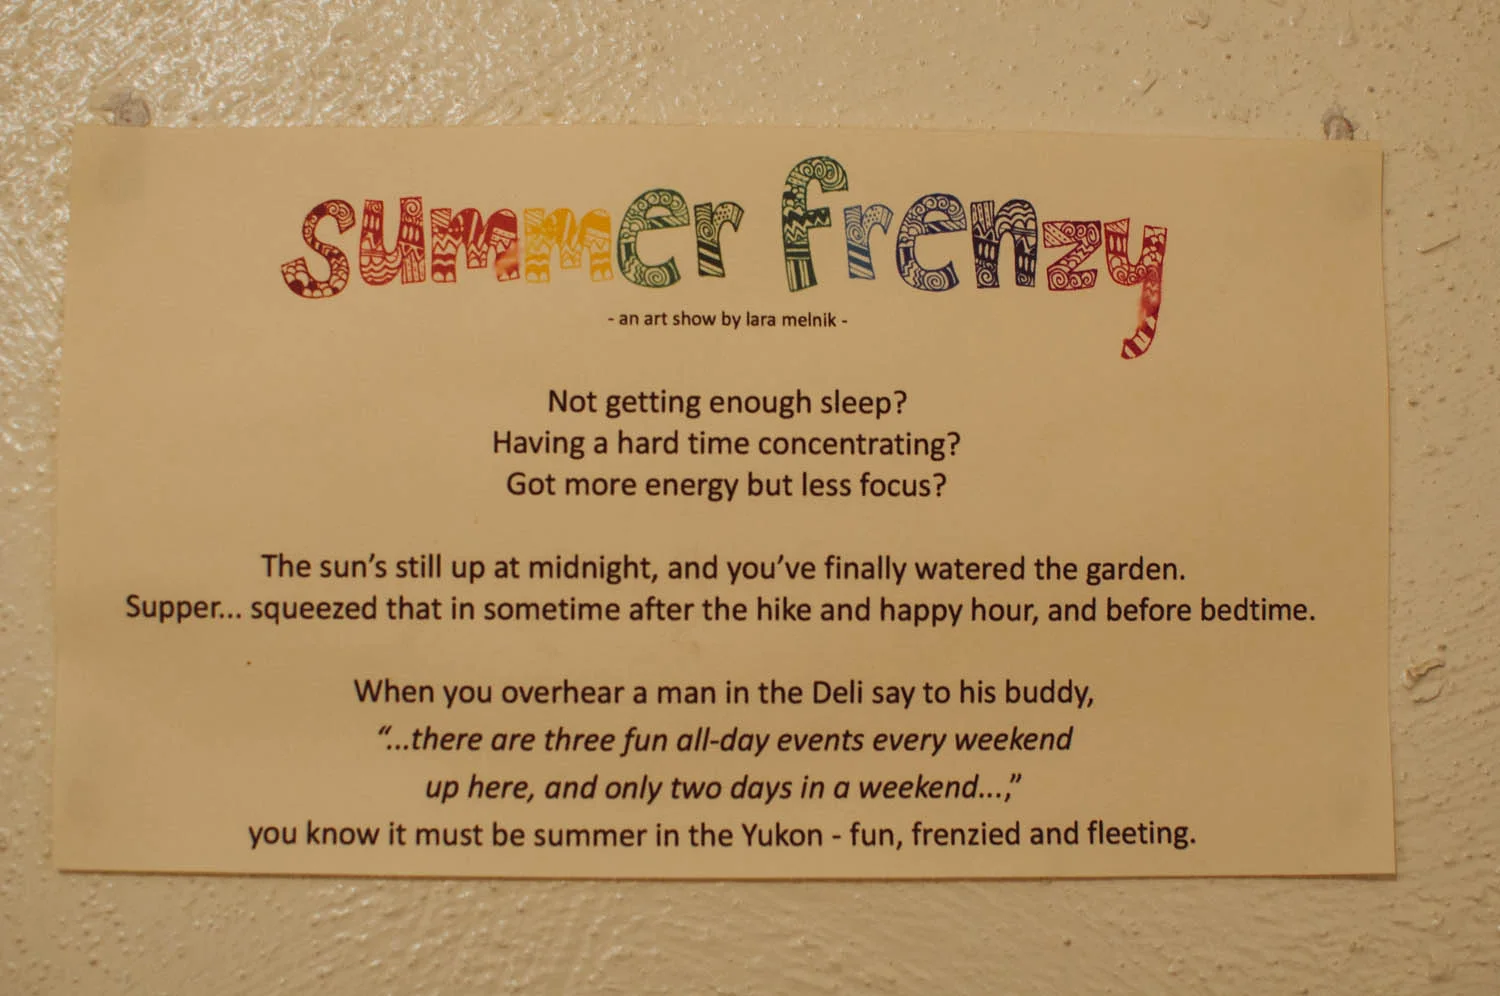 summer frenzy
- an art show by lara melnik -
Not getting enough sleep?
Having a hard time concentrating?
Got more energy but less focus?
The sun's still up at midnight, and you've finally watered the garden.
Supper... squeezed that in sometime after the hike and happy hour, and before bedtime.
When you overhear a man in the Deli say to his buddy,
“...there are three fun all-day events every weekend
up here, and only two days in a weekend...,”
you know it must be summer in the Yukon - fun, frenzied and fleeting.